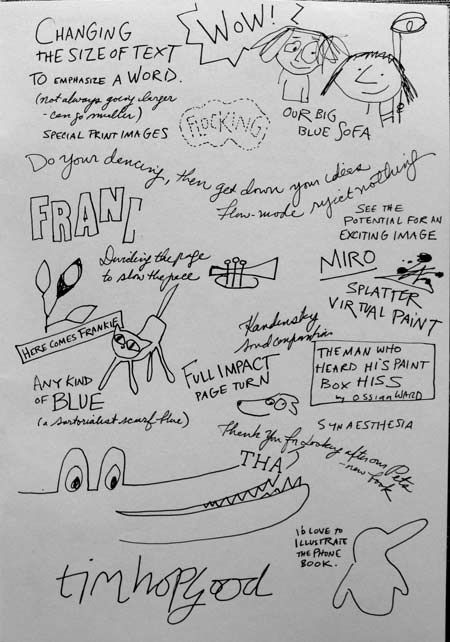 CHANGING
THE SIZE OF TEXT
TO EMPHASIZE A WORD.
(not always going larger
- can go smaller)
SPECIAL PRINT IMAGES
WOW!
FLOCKING
OUR BIG
BLUE SOFA
Do your dancing, then get down your ideas
Flow-mode reject nothing
FRAN
SEE THE
POTENTIAL FOR AN
EXCITING IMAGE
Dividing the page
to slow the pace
MIRO
SPLATTER
VIRTUAL PAINT
HERE COMES FRANKIE
Kandinsky
FULL IMPACT
PAGE TURN
THE MAN WHO
HEARD HIS PAINT
BOX HISS
by OSSIAN WARD
ANY KIND
OF BLUE
(a sartorialist scarf blue)
SYNAESTHESIA
Thank You for Looking after our Pets
- new book
THA
I'D LOVE TO
ILLUSTRATE
THE PHONE
BOOK.
tim hopgood